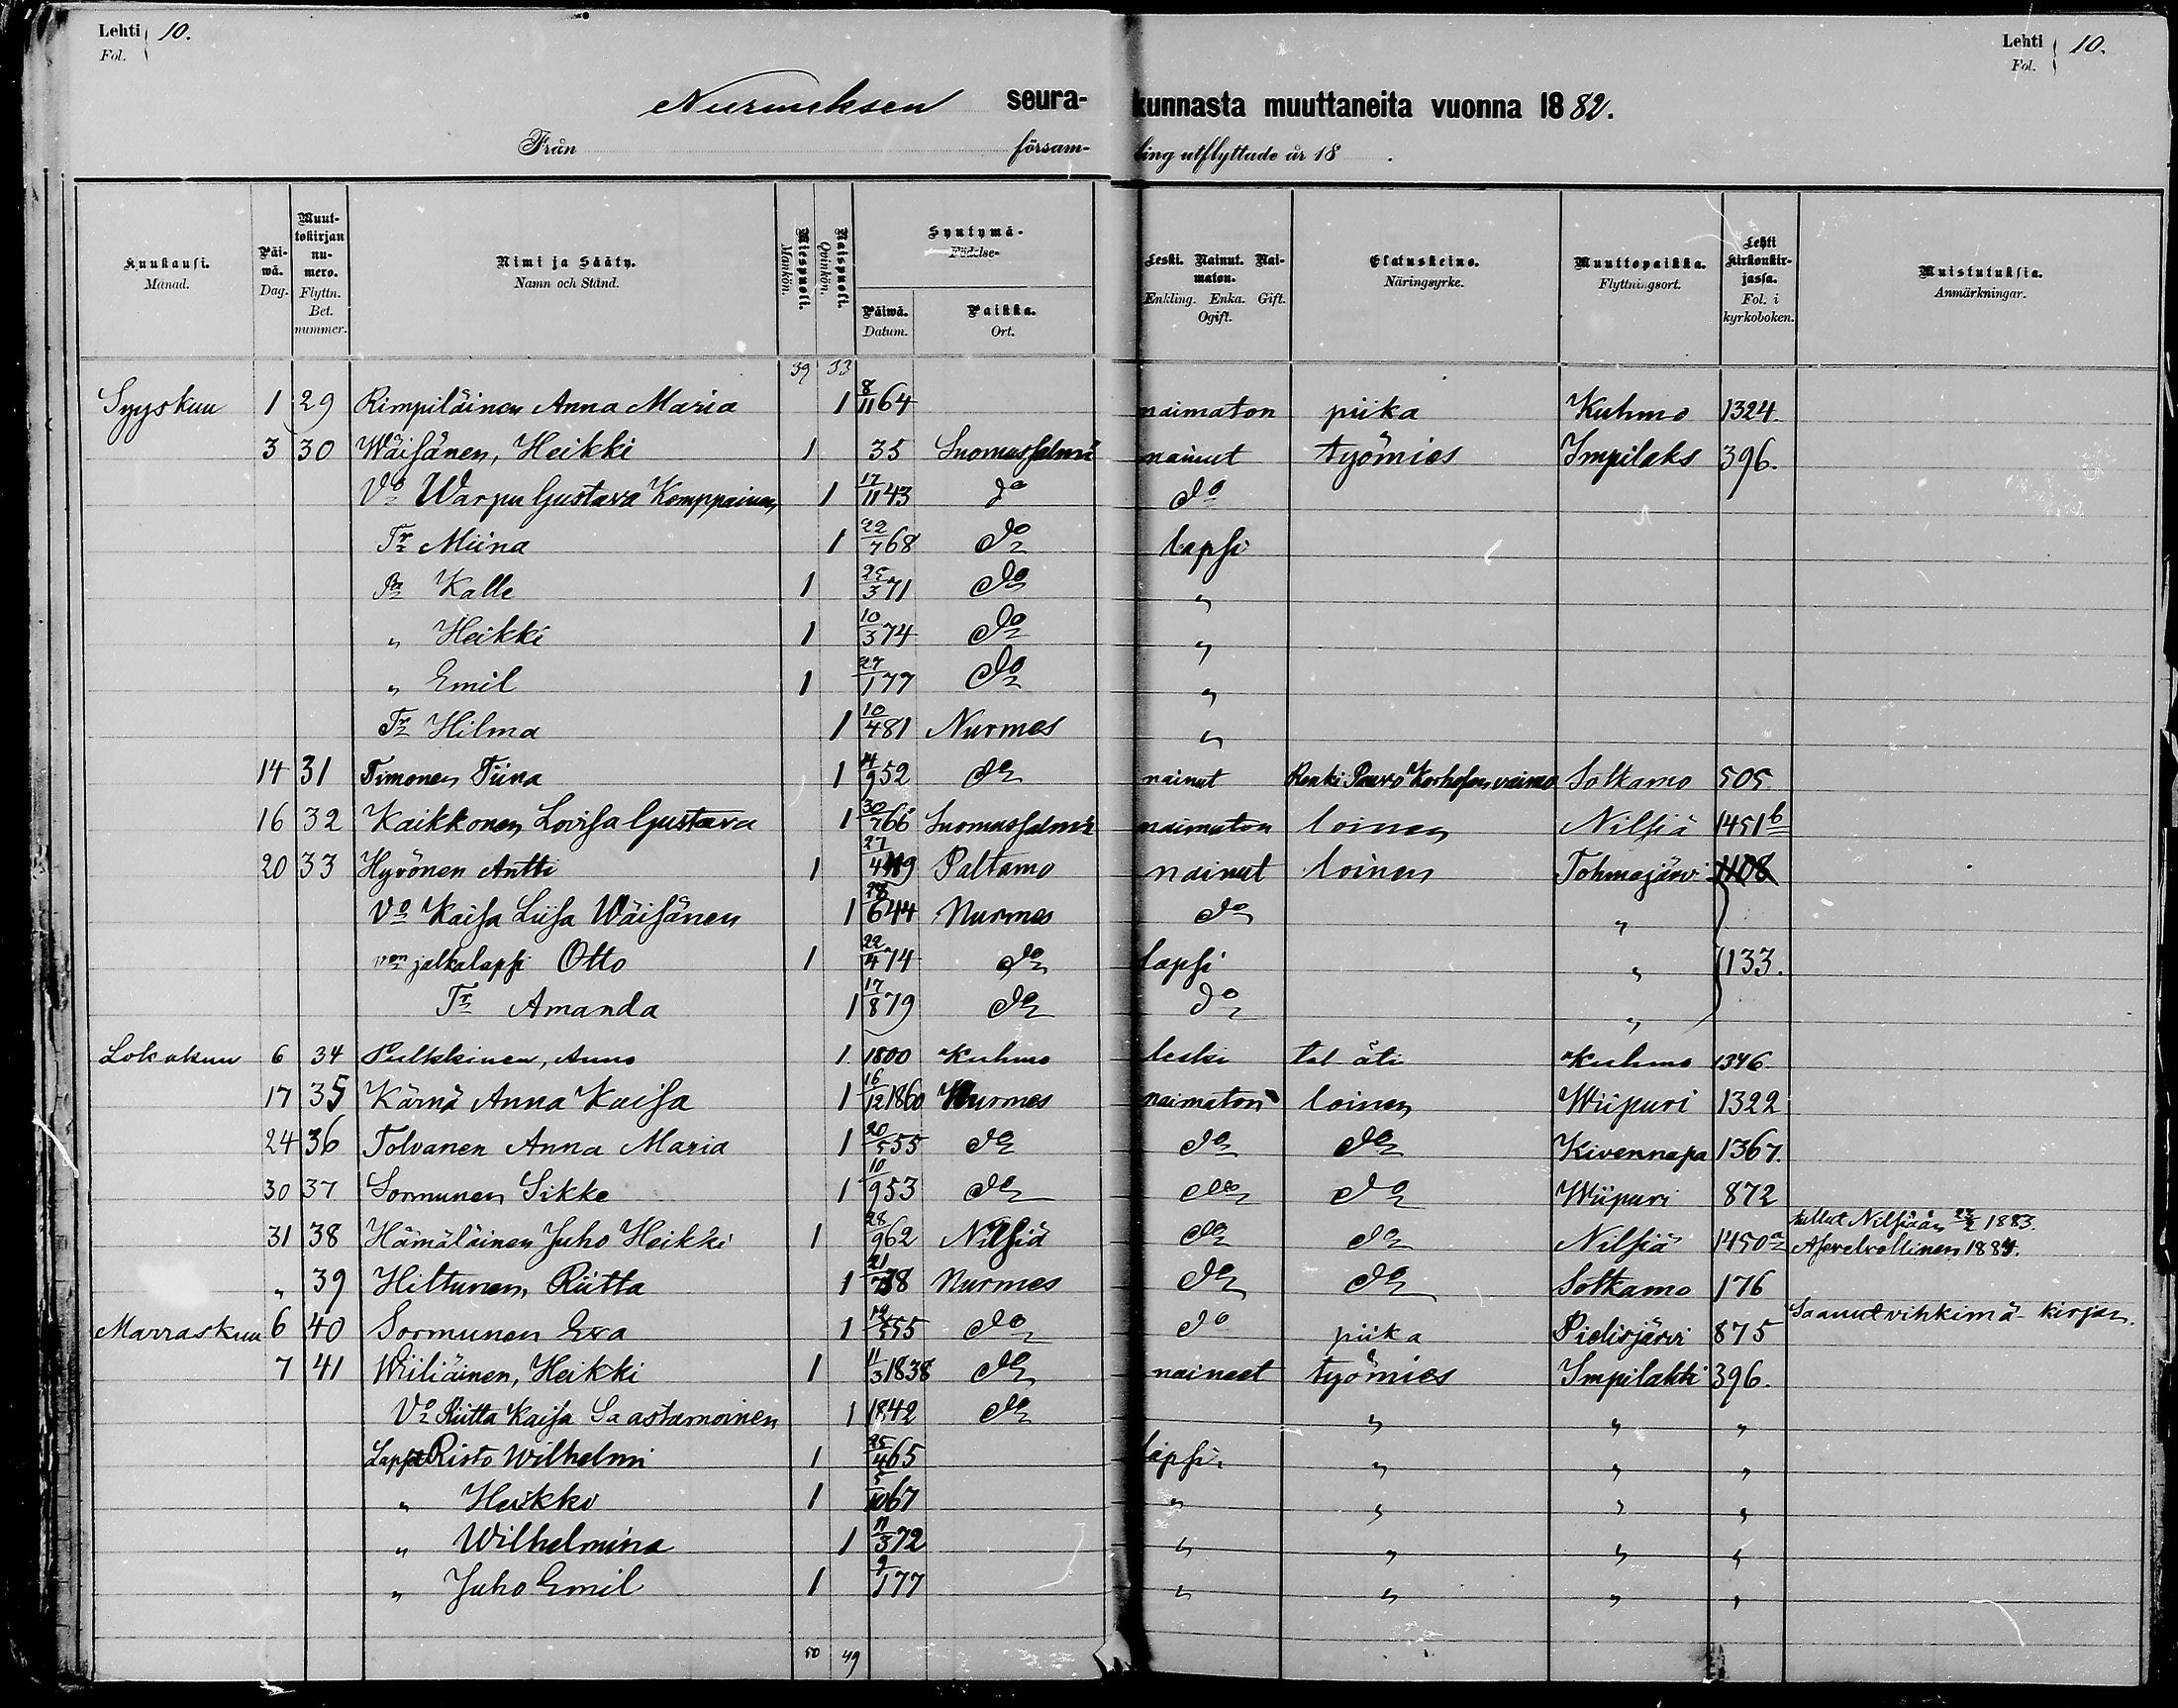 Lehti 10. Lehti 10.
Fol. Fol.
Nurmeksen seurakunnasta muuttaneita vuonna 1882.
Från församling utflyttade år 18 .
Kuukausi. Månad. Päiwä. Dag. Muuttokirjan numero. Flyttn. Bet. nummer. Nimi ja Sääty. Namn och Stånd. Miespuoli. Mankön. Naispuoli. Qvinkön. Syntymä- Födelse- Päiwä. Datum. Paikka. Ort. Leski. Nainut. Naimaton. Enkling. Enka. Gift. Ogift. Elatuskeino. Näringsyrke. Muuttopaikka. Flyttningsort. Lehti kirkonkirjassa. Fol. i kyrkoboken. Muistutuksia. Anmärkningar.
39 33
Syyskuu 1 29 Rimpiläinen Anna Maria 1 8/11 64 naimaton piika Kuhmo 1324.
3 30 Wäisänen, Heikki 1 35 Suomussalmi nainut työmies Impilaks 396.
Vo Warpu Gustava Komppainen 1 17/11 43 do do
Tr Miina 1 22/7 68 do lapsi
Pa Kalle 1 25/3 71 do "
" Heikki 1 10/3 74 do "
" Emil 1 27/1 77 do "
Tr Hilma 1 10/4 81 Nurmes "
14 31 Timonen Tiina 1 14/9 52 do nainut Renki Paavo Korhosen vaimo Sotkamo 505.
16 32 Kaikkonen Lovisa Gustava 1 30/7 66 Suomussalmi naimaton loinen Nilsiä 1451b
20 33 Hyvönen Antti 1 27/4 49 Paltamo nainut loinen Tohmajärvi 1108
Vo Kaisa Liisa Wäisänen 1 28/6 44 Nurmes do "
von jalkalapsi Otto 1 22/4 74 do lapsi " 1133.
Tr Amanda 1 17/8 79 do do "
Lokakuu 6 34 Pulkkinen, Anna 1 1800 Kuhmo leski tal äti Kuhmo 1346.
17 35 Kärnä Anna Kaisa 1 16/12 1860 Nurmes naimaton loinen Wiipuri 1322
24 36 Tolvanen Anna Maria 1 20/5 55 do do do Kivennapa 1367.
30 37 Sormunen Sikke 1 10/9 53 do do do Wiipuri 872
31 38 Hämäläinen Juho Heikki 1 28/9 62 Nilsiä do do Nilsiä 1450a tullut Nilsiään 27/2 1883. Asevelvollinen 1884.
" 39 Hiltunen, Riitta 1 21/7 38 Nurmes do do Sotkamo 176
Marraskuu 6 40 Sormunen Eva 1 19/5 55 do do piika Pielisjärvi 875 Saanut vihkimä-kirjan.
7 41 Wiiliäinen, Heikki 1 11/3 1838 do naineet työmies Impilahti 396.
Vo Riitta Kaisa Saastamoinen 1 1842 do " " "
Lapset Risto Wilhelmi 1 25/4 65 lapsi. " " "
" Heikki 1 5/10 67 " " " "
" Wilhelmina 1 11/3 72 " " " "
" Juho Emil 1 9/1 77 " " " "
50 49